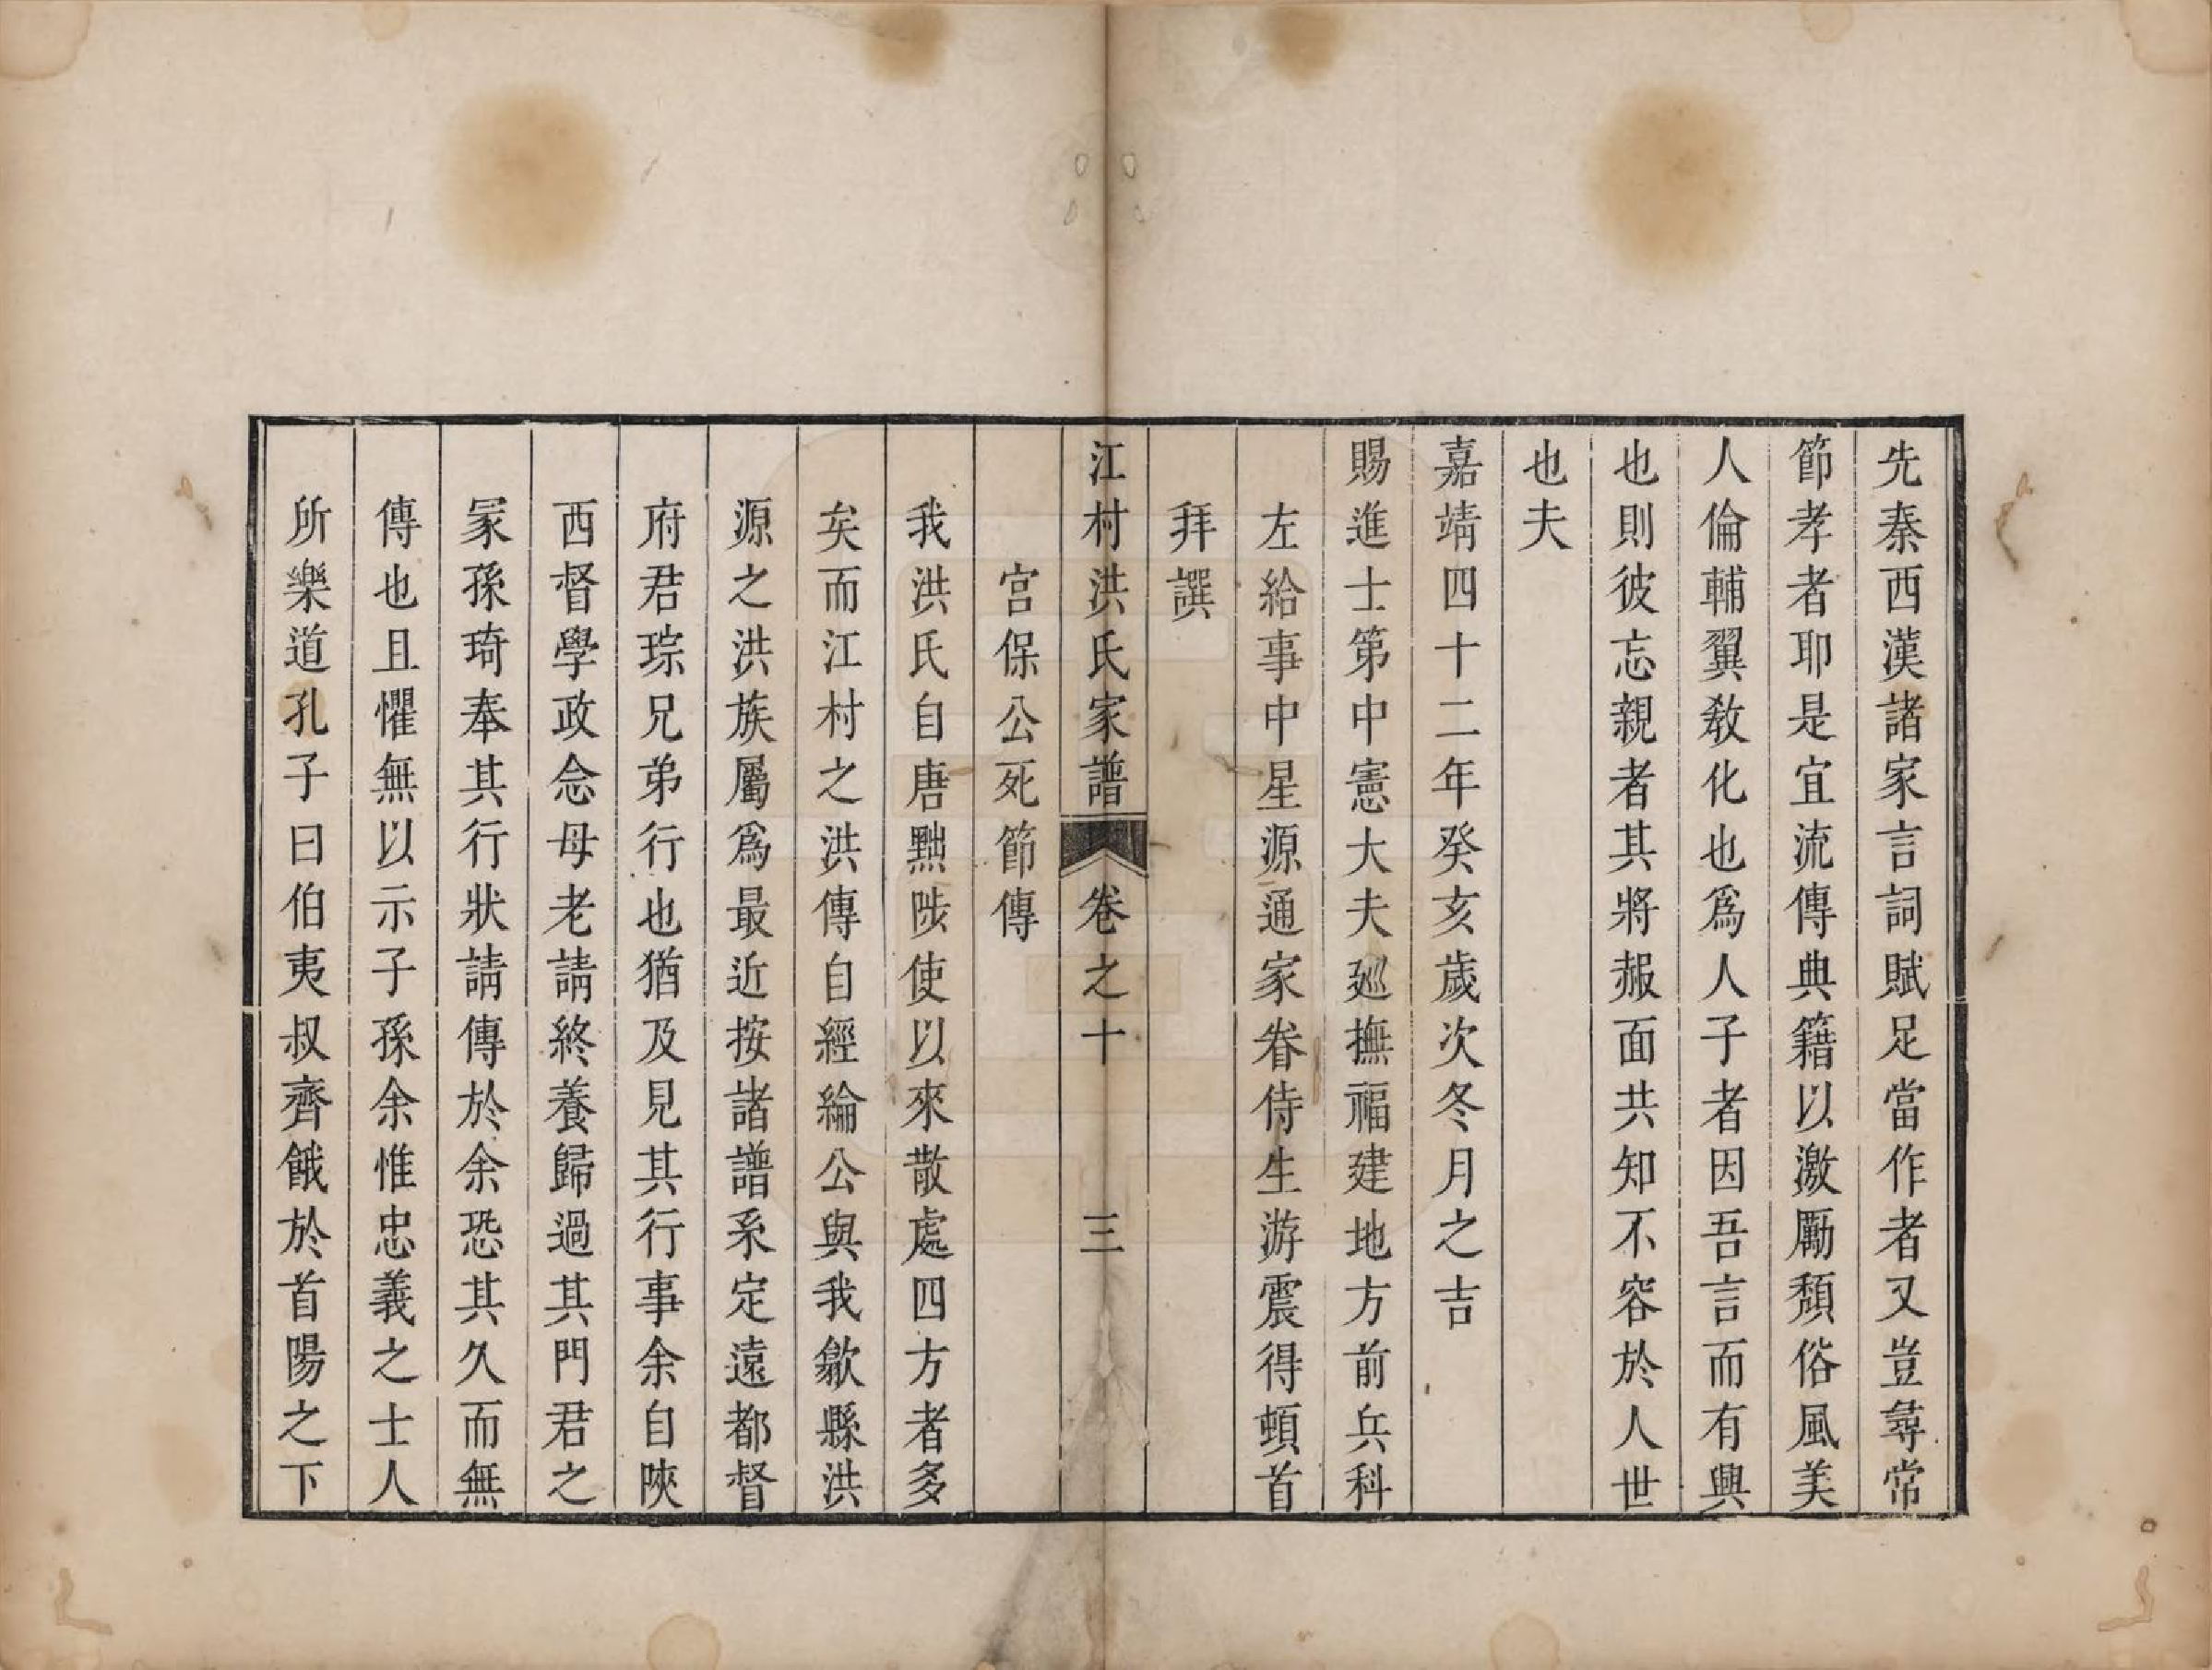 先秦西漢諸家言詞賦足當作者又豈尋常
節孝者耶是宜流傳典籍以激勵頽俗風美
人倫輔翼敎化也爲人子者因吾言而有興
也則彼忘親者其將赧面共知不容於人世
也夫
嘉靖四十二年癸亥歲次冬月之吉
賜進士第中憲大夫廵撫福建地方前兵科
左給事中星源通家眷侍生游震得頓首
拜譔
江村洪氏家譜 卷之十 三
宫保公死節傳
我洪氏自唐黜陟使以來散處四方者多
矣而江村之洪傳自經綸公與我歙縣洪
源之洪族屬爲最近按諸譜系定遠都督
府君琮兄弟行也猶及見其行事余自陝
西督學政念母老請終養歸過其門君之
冡孫琦奉其行狀請傳於余恐其久而無
傳也且懼無以示子孫余惟忠義之士人
所樂道孔子曰伯夷叔齊餓於首陽之下